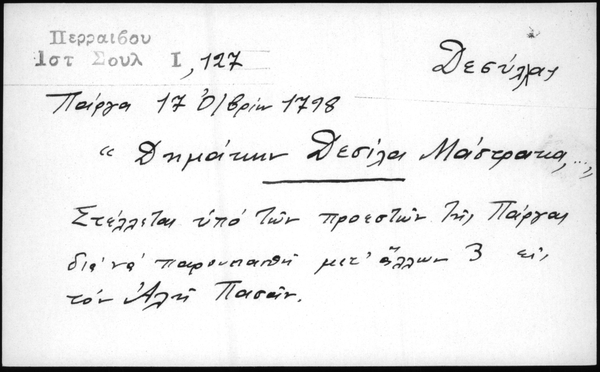 Περραιβου
Ιστ Σουλ Ι, 127
Δεσύλλας
Πάργα 17 Ὀ/βρίου 1798
“ Δημάκην Δεσίλα Μάστρακα, ...,
Στέλλεται ὑπό τῶν προεστών τῆς Πάργας
διά νά παρουσιασθῆ μετ' ἄλλων 3 εἰς
τόν Ἀλῆ Πασᾶν.